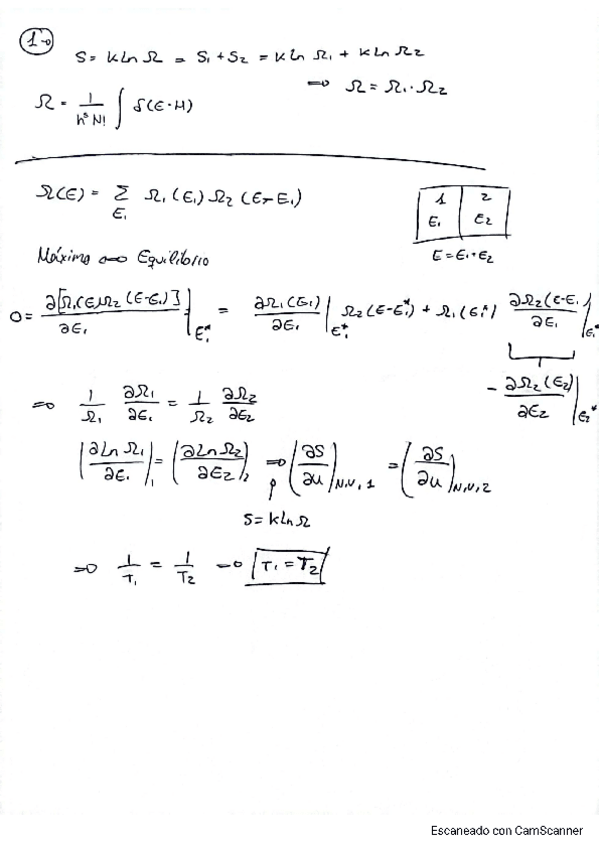 1.-
S = K Ln Ω = S₁ + S₂ = K Ln Ω₁ + K Ln Ω₂
⇒ Ω = Ω₁ · Ω₂
Ω = 1/(h^s N!) ∫ δ(E - H)
Ω(E) = Σ_{E₁} Ω₁(E₁) Ω₂(E - E₁)
1 2
E₁ E₂
E = E₁ + E₂
Máximo ⇔ Equilibrio
0 = ∂[Ω₁(E₁)Ω₂(E-E₁)]/∂E₁ |_{E₁*} = ∂Ω₁(E₁)/∂E₁ |_{E₁*} Ω₂(E-E₁*) + Ω₁(E₁*) ∂Ω₂(E-E₁)/∂E₁ |_{E₁*}
- ∂Ω₂(E₂)/∂E₂ |_{E₂*}
⇒ 1/Ω₁ ∂Ω₁/∂E₁ = 1/Ω₂ ∂Ω₂/∂E₂
(∂Ln Ω₁/∂E₁)₁ = (∂Ln Ω₂/∂E₂)₂ ⇒ (∂S/∂u)_{N,V,1} = (∂S/∂u)_{N,V,2}
S = K Ln Ω
⇒ 1/T₁ = 1/T₂ → T₁ = T₂
Escaneado con CamScanner